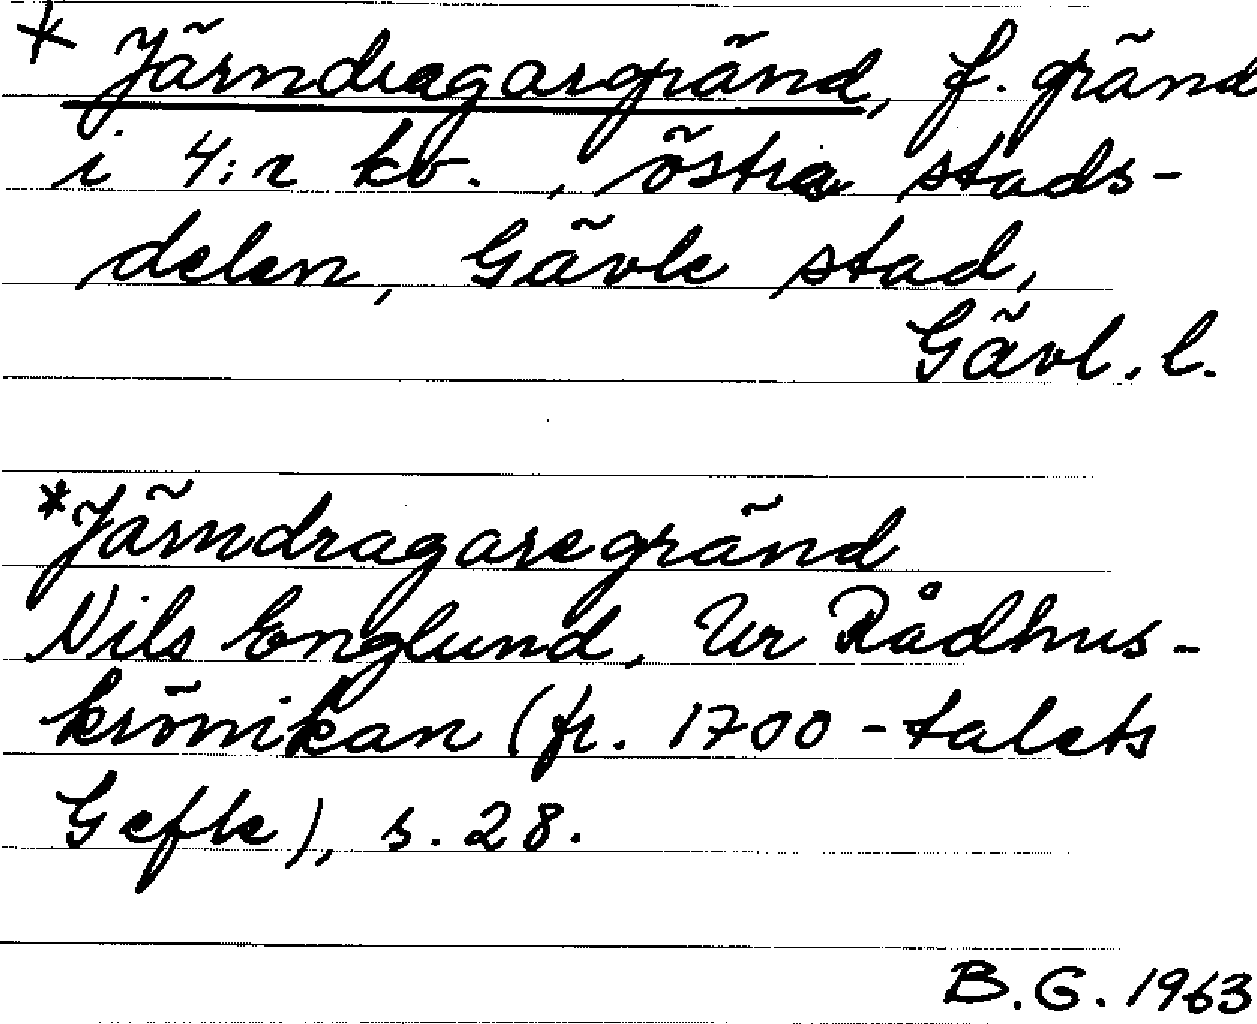 * Järndragargränd, f. gränd
i 4:r kv., östra stads-
delen, Gävle stad,
Gävl. l.
*Järndragaregränd
Nils Englund, Ur Rådhus-
krönikan (fr. 1700-talets
Gefle), s. 28.
B.G. 1963